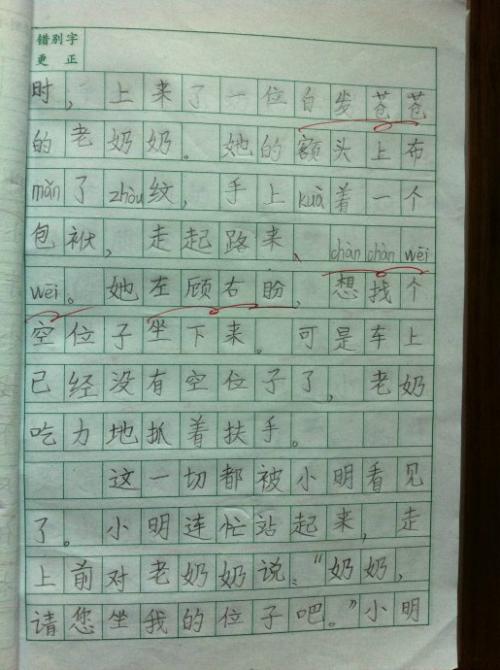 错别字
更正
时，上来了一位白发苍苍
的老奶奶。她的额头上布
mǎn了zhòu纹，手上kuà着一个
包袱，走起路来、chàn chàn wēi
wēi。她左顾右盼，想找个
空位子坐下来。可是车上
已经没有空位子了，老奶
吃力地抓着扶手。
这一切都被小明看见
了。小明连忙站起来，走
上前对老奶奶说：“奶奶，
请您坐我的位子吧。”小明